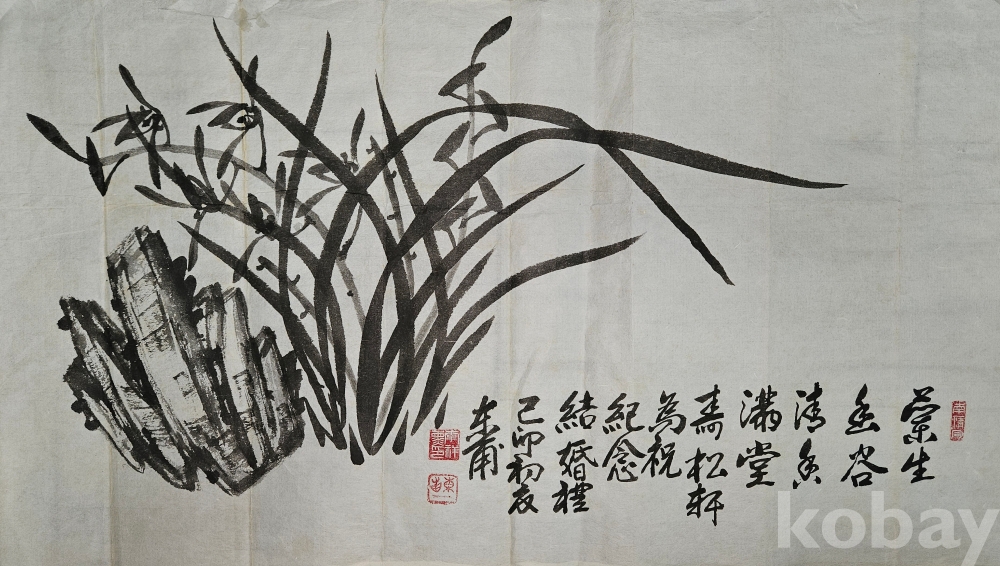 蘭生
幽谷
清香
滿堂
壽松軒
為祝
紀念
結婚禮
己卯初夏
東甫
kobay